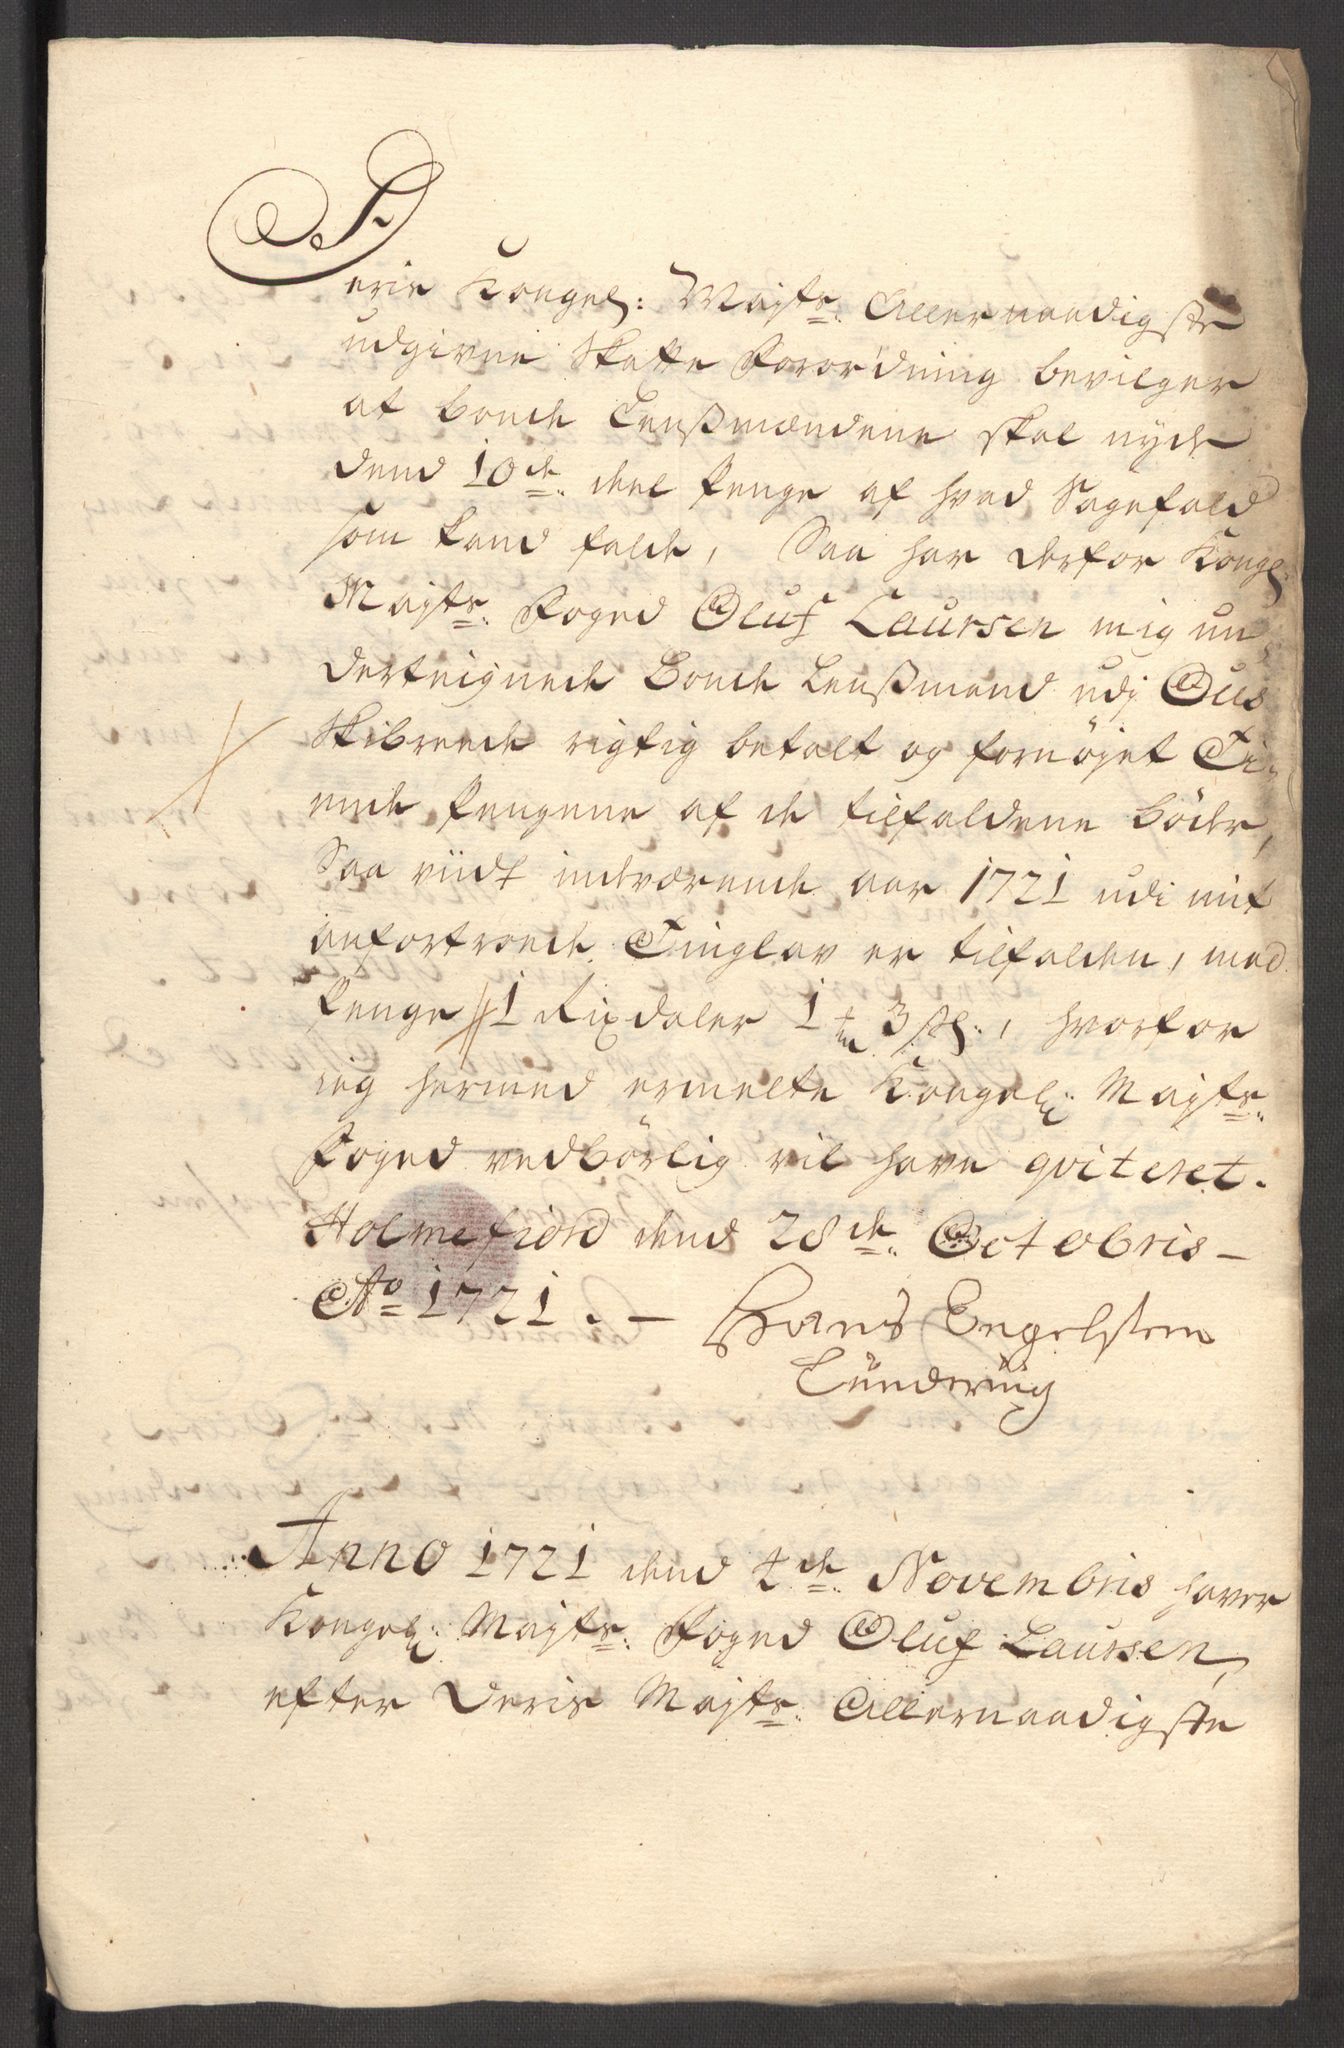 Deris Kongel: Mayts: Allernaadigste
udgivne Skatte Forordning bevilger
at bonde Lensßmændene skal nyde
dend 10de deel Penge af hvad Sagefald
som kand falde, Saa har derfor Kongl:
Mayts: Foged Oluf Laursen mig un
derteignede Bonde Lensßmand udj Ous
Skibrede rigtig betalt og fornöyet Ti,
ende Pengene af de tilfaldene Böder,
Saa viidt indeværende aar 1721 udi mit
anfortroede Tinglav er tilfalden, med
Penge 1 Rixdaler 1 3 ß:, hvorfor
ieg hermed ermelte Kongel: Mayts:
Foged vedbörlig vil have qviteret.
Holmefiord dend 28de: Octobris –
Ao 1721. – Hans Engelsten
Lündering
Anno 1721 dend 4de: Novembris haver
Kongel: Mayts: Foged Oluf Laursen,
efter Deris Mayts: Allernaadigste